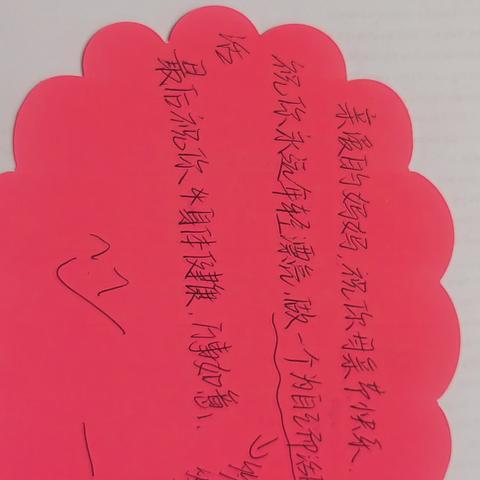 亲爱的妈妈，祝你母亲节快乐。
祝你永远年轻漂亮，做一个为自己而活
活
最后祝你 身体健康，万事如意！